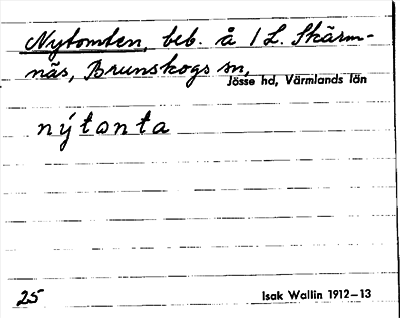 Nytomten, beb. å 1 L. Skärm-
näs, Brunskogs sn,
Jösse hd, Värmlands län
nýtonta
25
Isak Wallin 1912–13